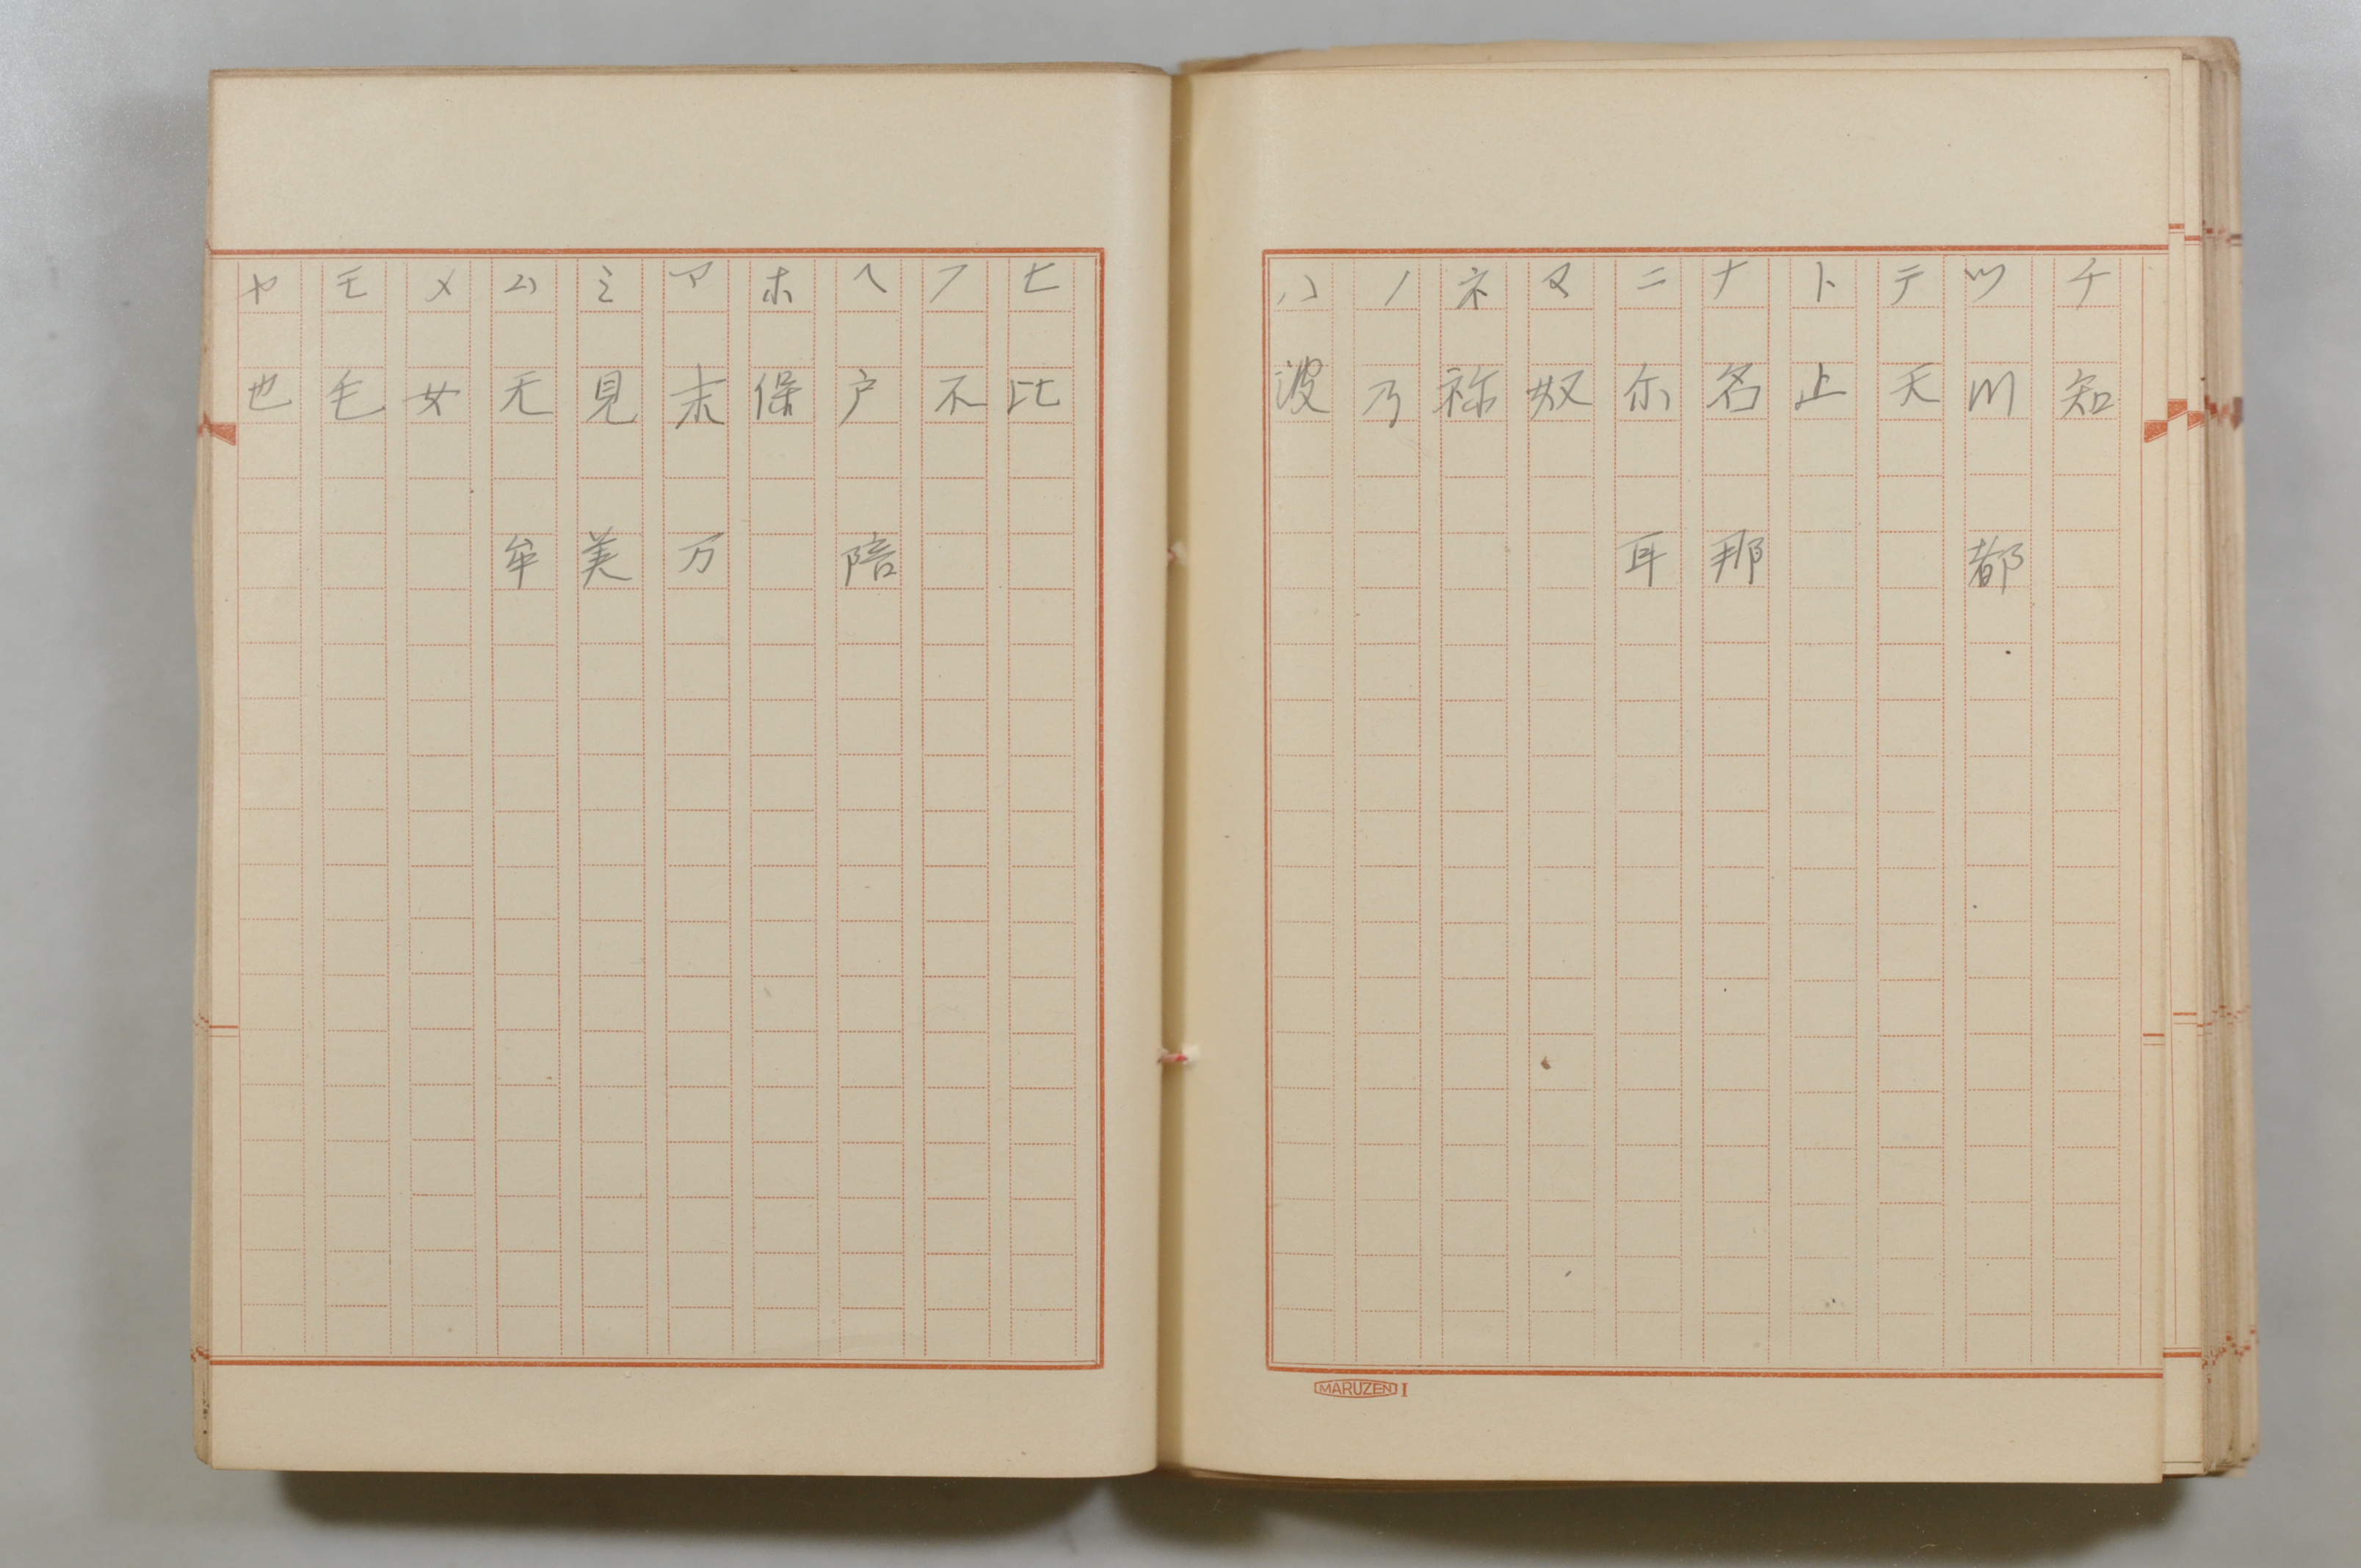 チ 知
ツ 川 都
テ 天
ト 止
ナ 名 那
ニ 尓 耳
ヌ 奴
ネ 祢
ノ 乃
ハ 波
MARUZEN I
ヒ 比
フ 不
ヘ 户 陪
ホ 保
マ 末 万
ミ 見 美
ム 无 牟
メ 女
モ 毛
ヤ 也